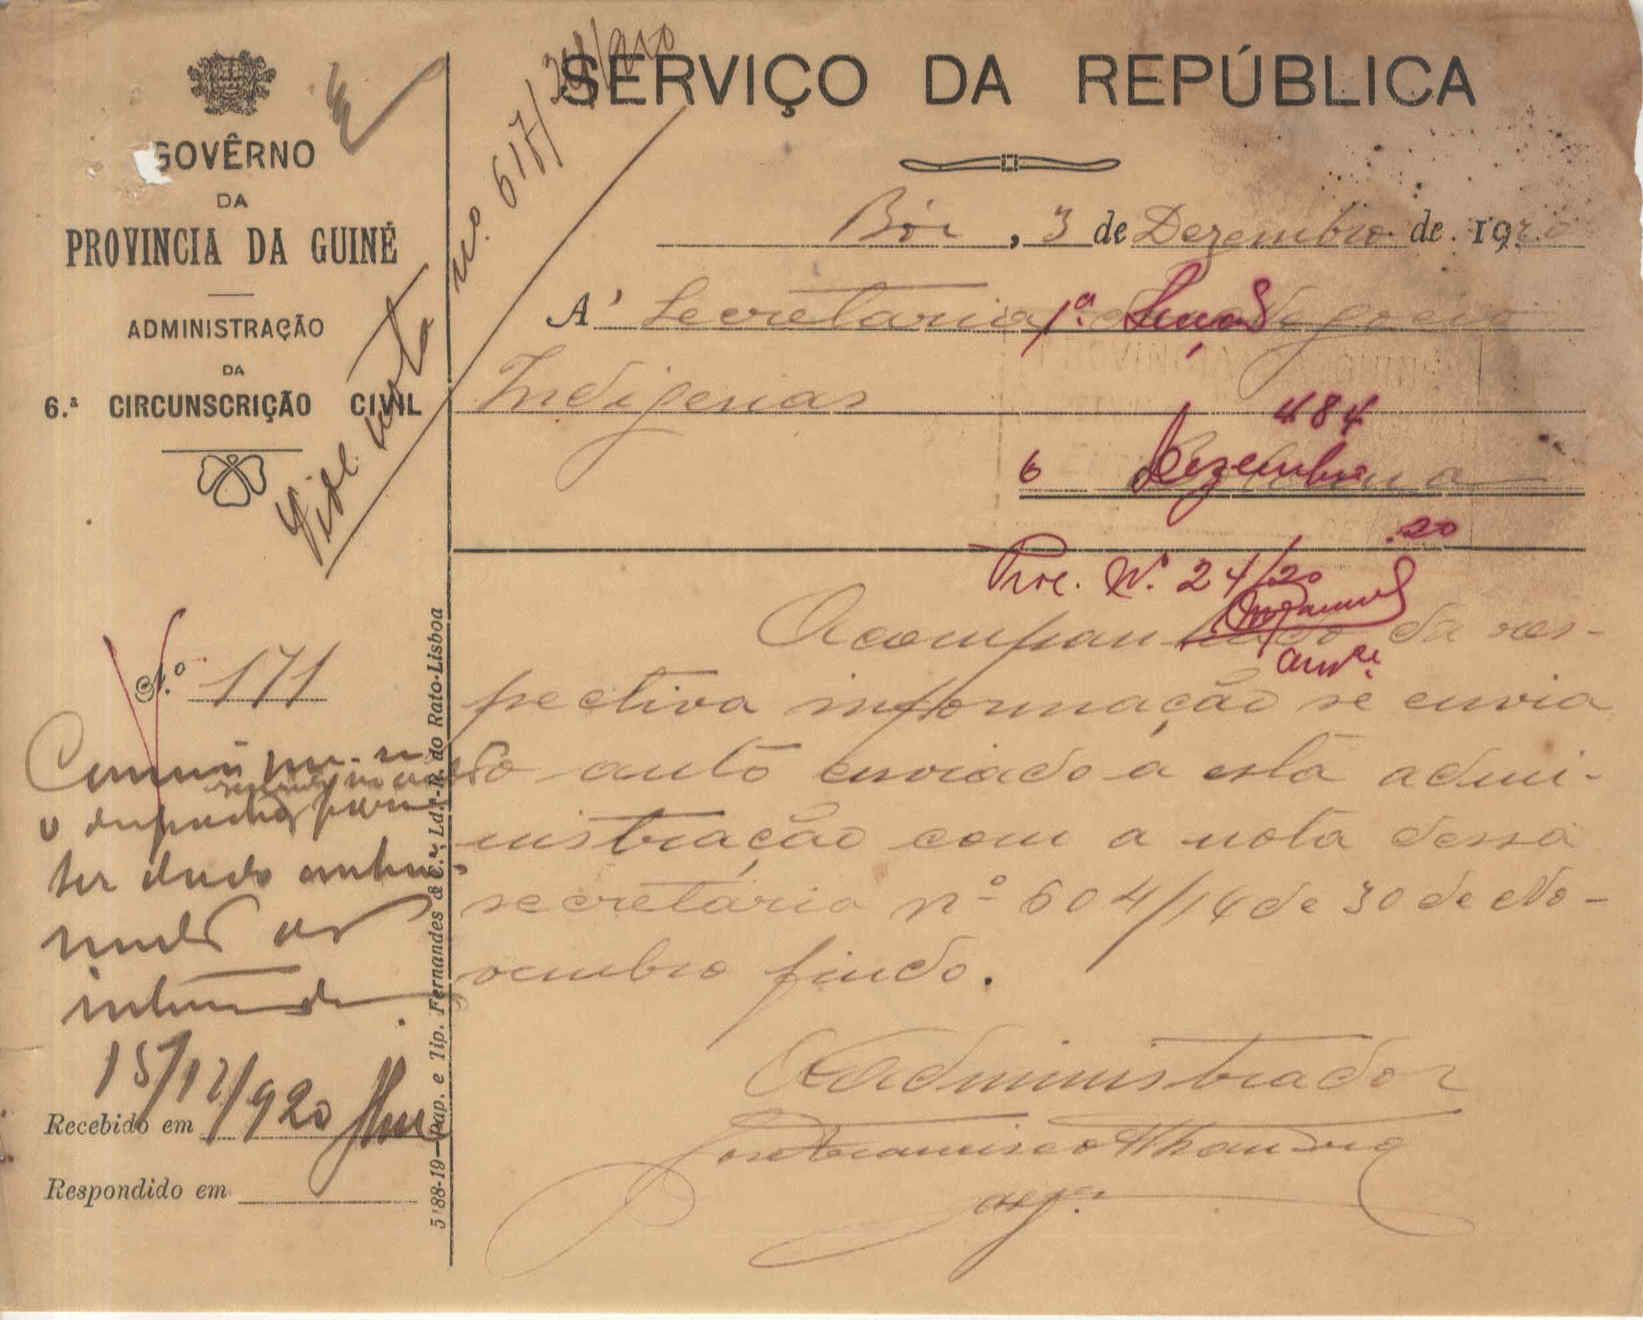 SERVIÇO DA REPÚBLICA
GOVÊRNO
DA
PROVINCIA DA GUINÉ
ADMINISTRAÇÃO
DA
6.ª CIRCUNSCRIÇÃO CIVIL
Vide nota nº 617/
, 3 de Dezembro de 1920
A' Secretaria dos Negocios
Indigenas
Bolama
1ª. Secção
484
6 Dezembro
.20
Proc. Nº. 24/20
N.º 171
Acompanhado da res-
pectiva informação se envia
o auto enviado a esta admi-
nistração com a nota dessa
secretaria nº 604/14 de 30 de No-
vembro findo.
O Administrador
José Francisco
alf.
o despacho por
ter dado
15/12/920
Recebido em
Respondido em
5188-19—Pap. e Tip. Fernandes & C.ª, Ld.ª-R. do Rato-Lisboa